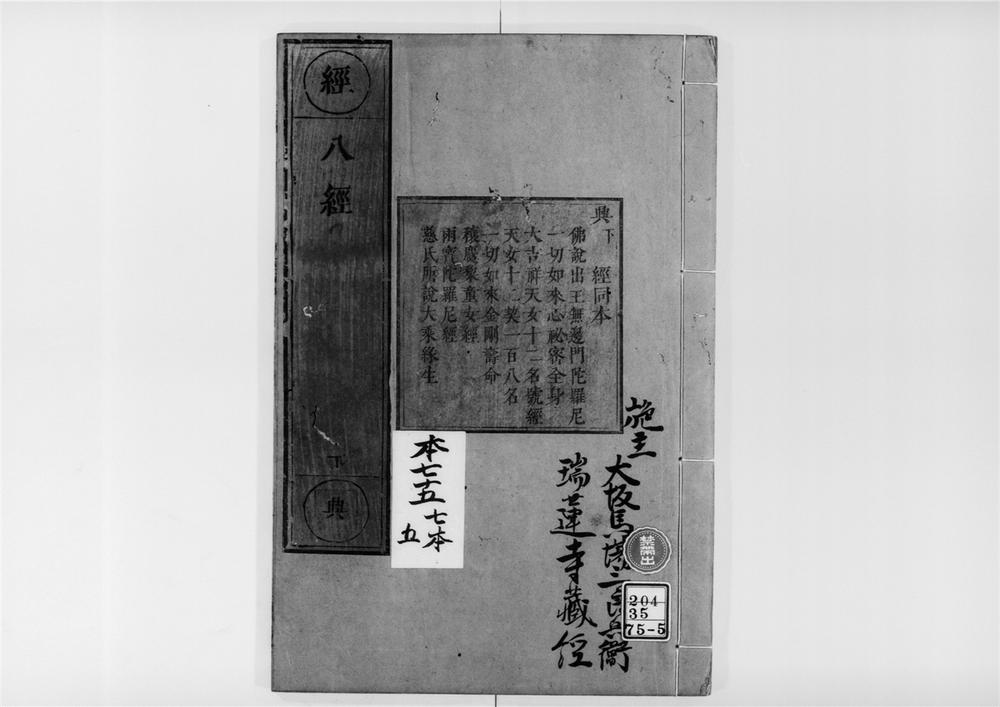 經
八經
下
典
典下 經同本
佛說出王無邊門陀羅尼
一切如來心祕密全身
大吉祥天女十二名號經
天女十二契一百八名
一切如來金剛壽命
穰麌梨童女經
雨寶陀羅尼經
慈氏所說大乘緣生
施主
大坂
三郎兵衛
瑞蓮寺藏經
本七五
七本
五
禁帶出
204
35
75-5